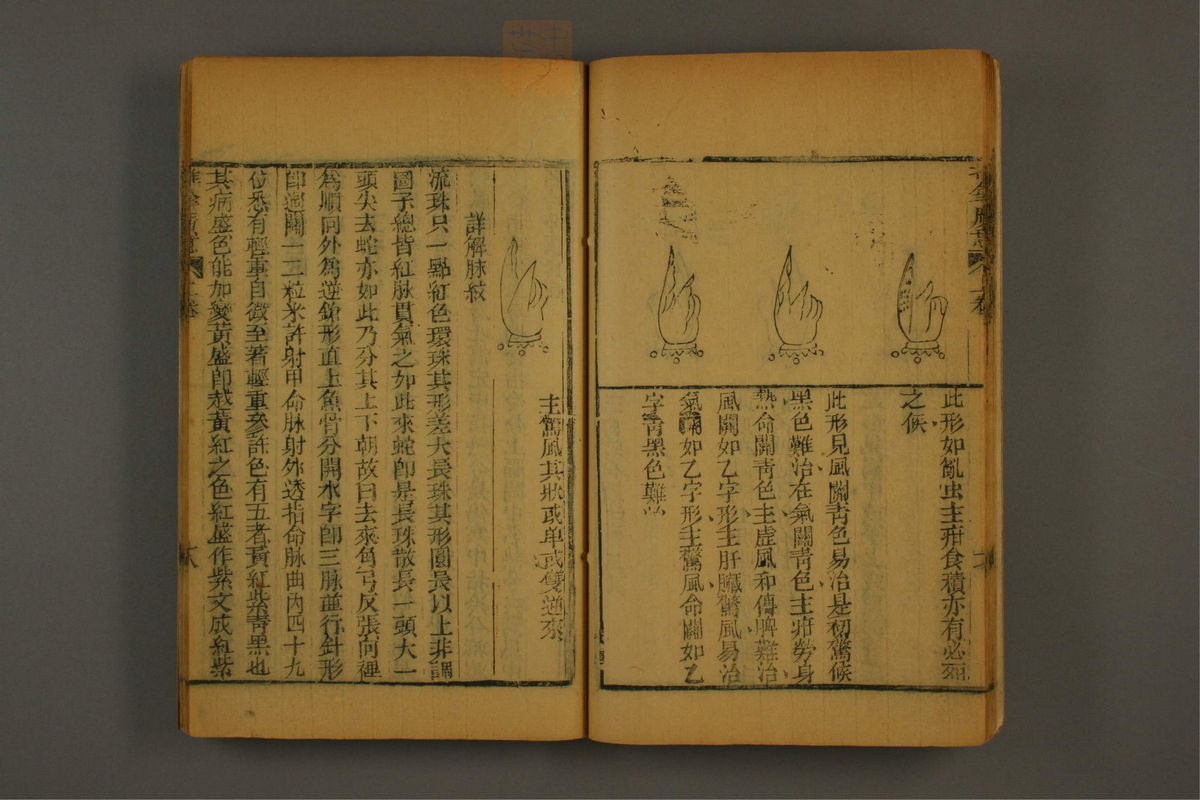 此形如亂虫主疳食積亦有必死
之候
此形見風關靑色易治是初驚候
黑色難治在氣關靑色主疳勞身
熱命關靑色主虛風和傳脾難治
風關如乙字形主肝臟驚風易治
氣關如乙字形主驚風命關如乙
字靑黑色難
主驚風其狀或單或雙逆來
詳解脉紋
流珠只一點紅色環珠其形差大長珠其形圓長以上非謂
圈子總皆紅脉貫氣之如此來蛇卽是長珠散長一頭大一
頭尖去蛇亦如此乃分其上下朝故曰去來角弓反張向裡
爲順向外爲逆鎗形直上魚骨分開水字卽三脉並行針形
卽過關一二粒米許射甲命脉射外透指命脉曲內四十九
位悉有輕重自微至著輕重參詳色有五者黃紅紫靑黑也
其病盛色能加變黃盛卽越黃紅之色紅盛作紫文成紅紫